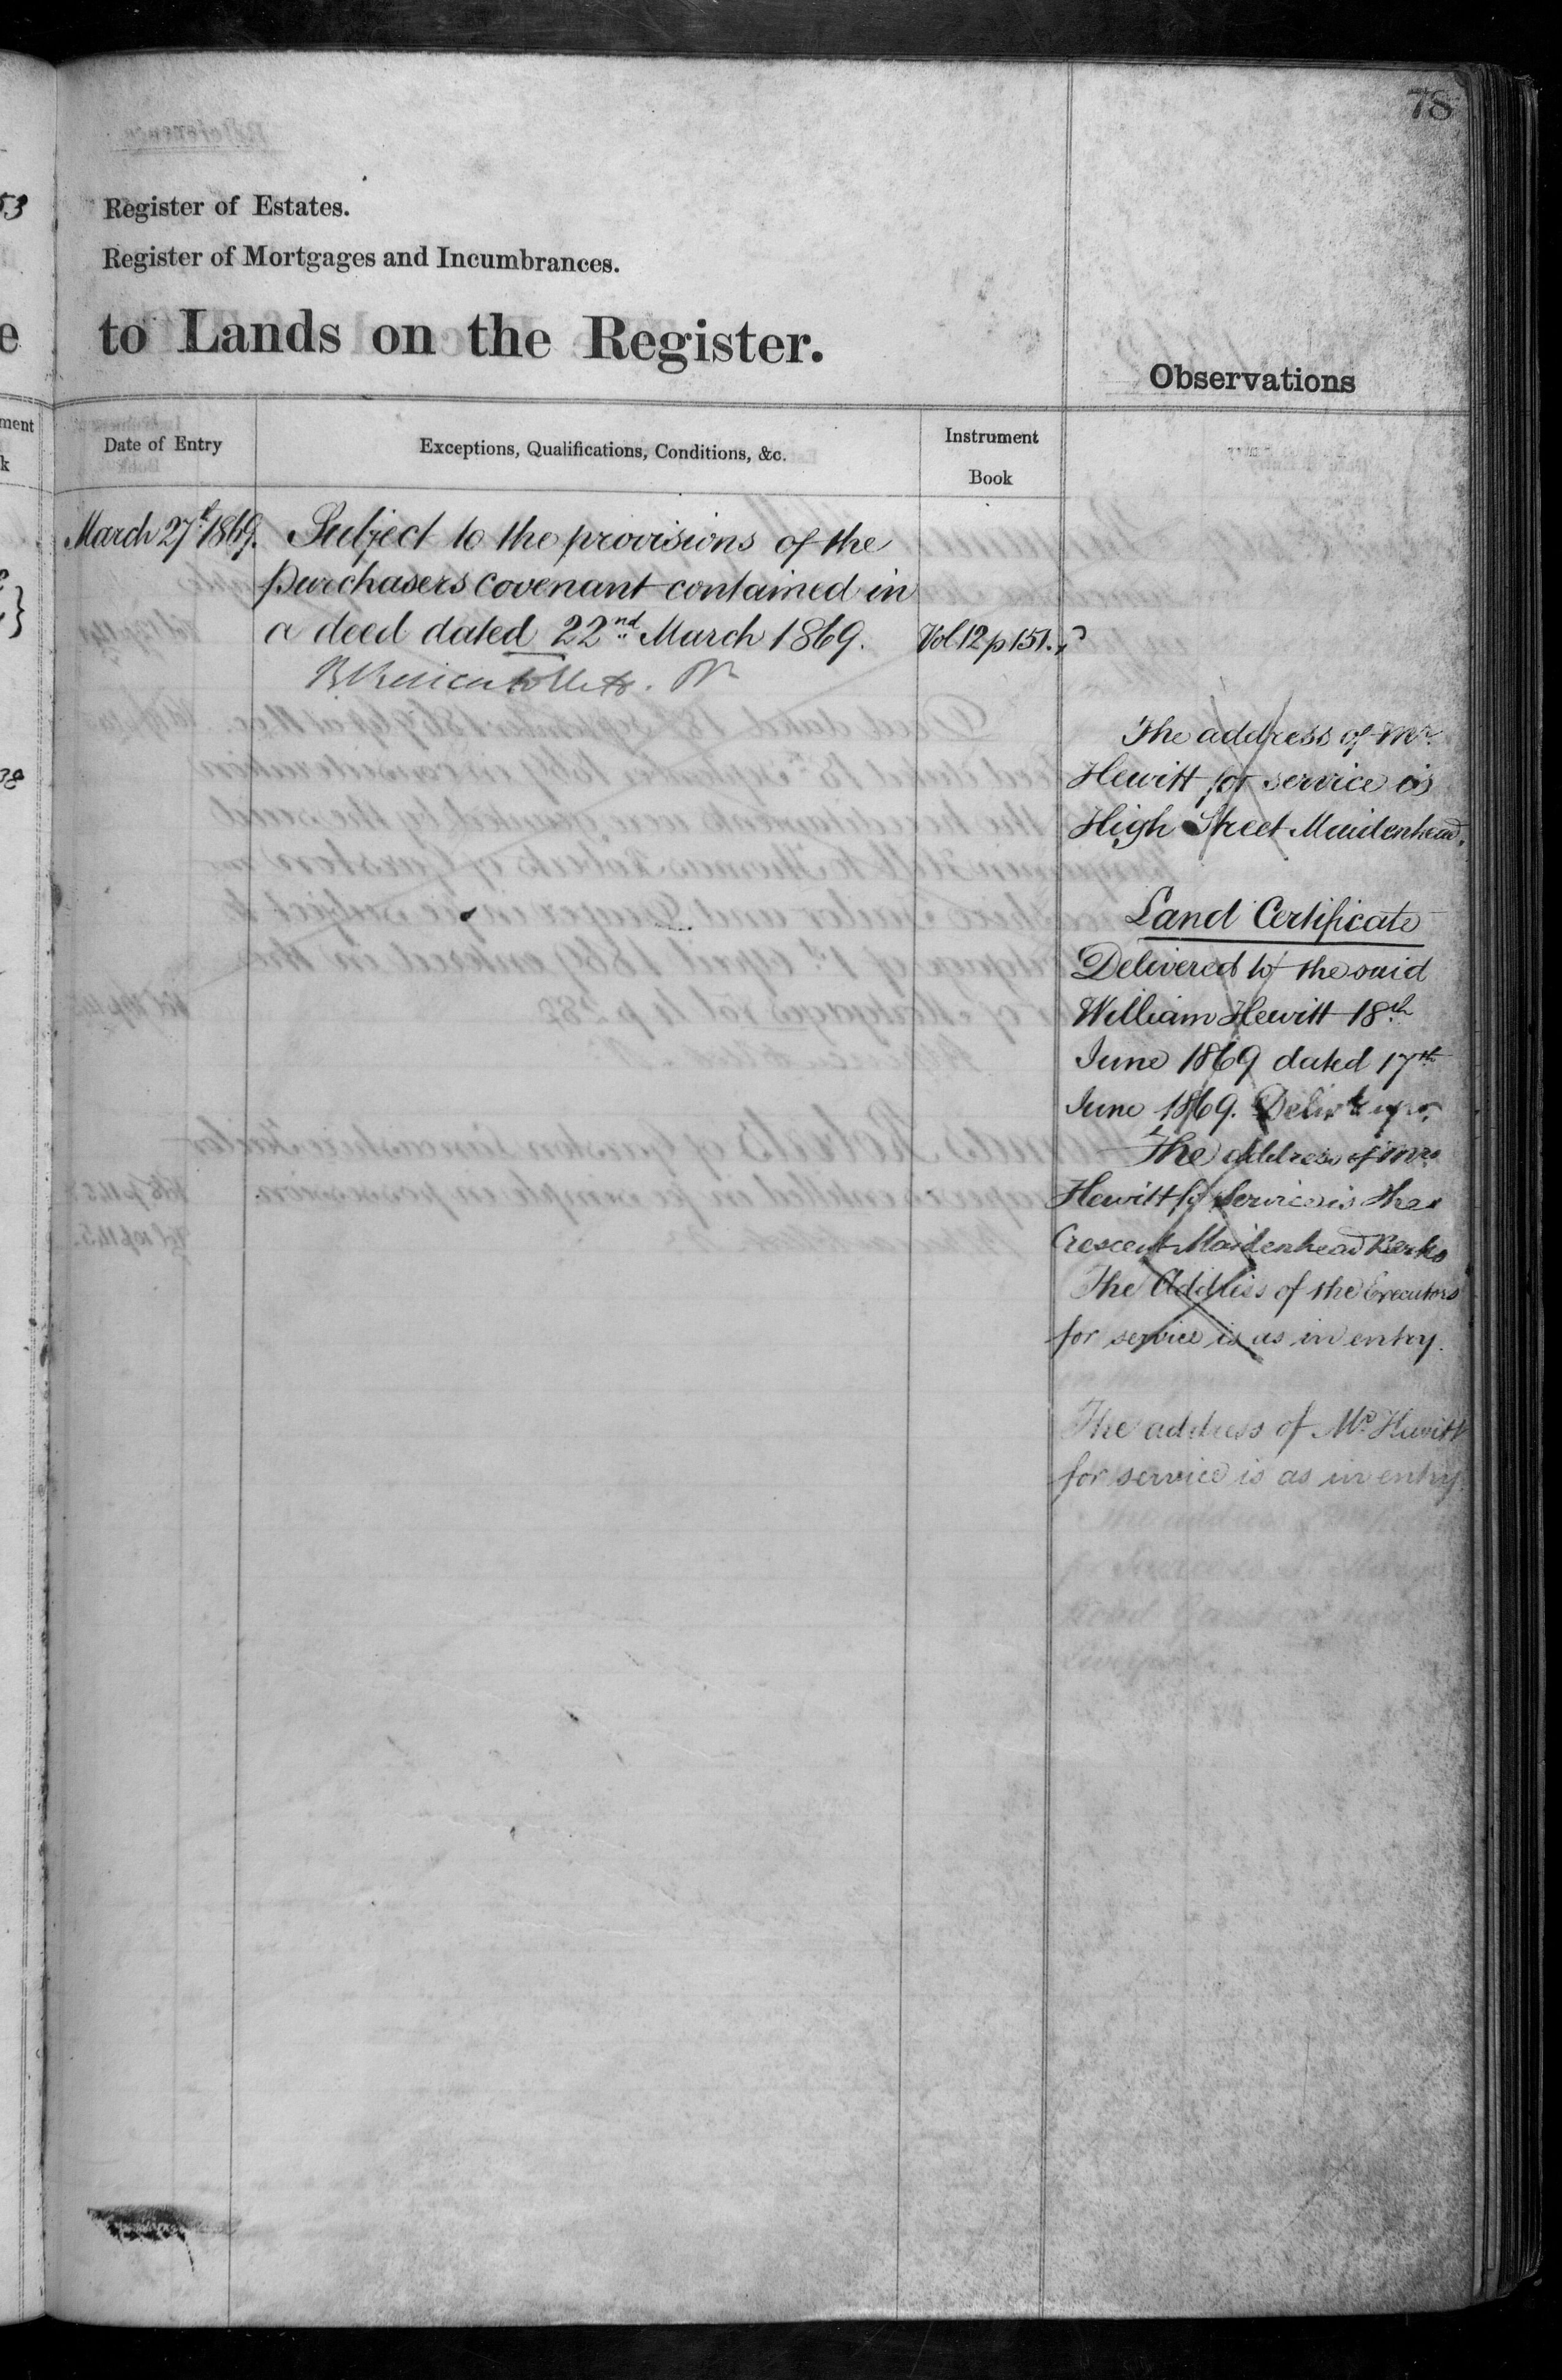 78
Register of Estates.
Register of Mortgages and Incumbrances.
to Lands on the Register.
Observations
Date of Entry
Exceptions, Qualifications, Conditions, &c.
Instrument
Book
March 27th 1869.
Subject to the provisions of the
purchasers covenant contained in
a deed dated 22nd March 1869.
Vol. 12 p 151.
The address of Mr.
Hewitt for service is
High Street Maidenhead.
Land Certificate
Delivered to the said
William Hewitt 18th
June 1869 dated 17th
June 1869. Delivd up
The address of Mr
Hewitt for Service is the
Crescent Maidenhead Berks
The Address of the Executors
for service is as in entry.
The address of Mr Hewitt
for service is as in entry.